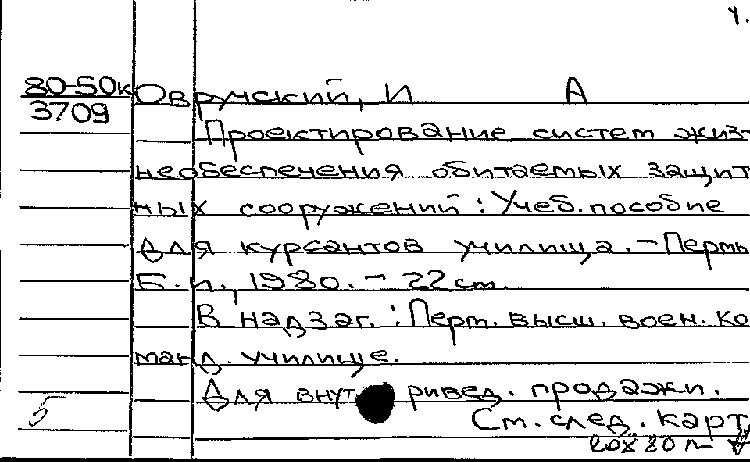 Ч.
80-50к Овручский, И А
3709
Проектирование систем жиз-
необеспечения обитаемых защит
ных сооружений: Учеб. пособие
для курсантов училища. - Пермь
Б. и., 1980. - 22 ст.
В надзаг.: Перм. высш. воен. ко
манд. училище.
Для внут ривед. продажи.
5 См. след. карт.